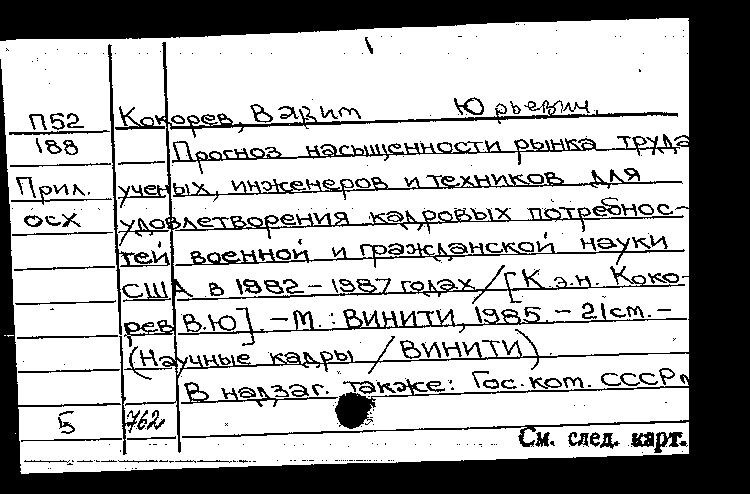 П52 Кокорев, Вавит Юрьевич.
188 Прогноз насыщенности рынка труда
Прил. ученых, инженеров и техников для
осх удовлетворения кадровых потребнос-
тей военной и гражданской науки
США в 1982 - 1987 годах / [К.э.н. Коко-
рев В.Ю]. - М.: ВИНИТИ, 1985. - 21 см. -
(Научные кадры / ВИНИТИ)
В надзаг. также: Гос. ком. СССР п
5 762
См. след. карт.